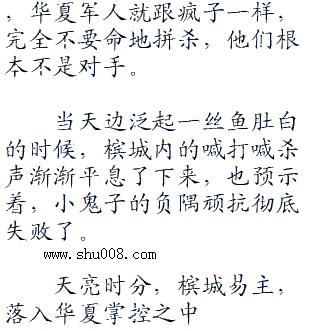 ，华夏军人就跟疯子一样，
完全不要命地拼杀，他们根
本不是对手。
当天边泛起一丝鱼肚白
的时候，槟城内的喊打喊杀
声渐渐平息了下来，也预示
着，小鬼子的负隅顽抗彻底
失败了。
www.shu008.com
天亮时分，槟城易主，
落入华夏掌控之中